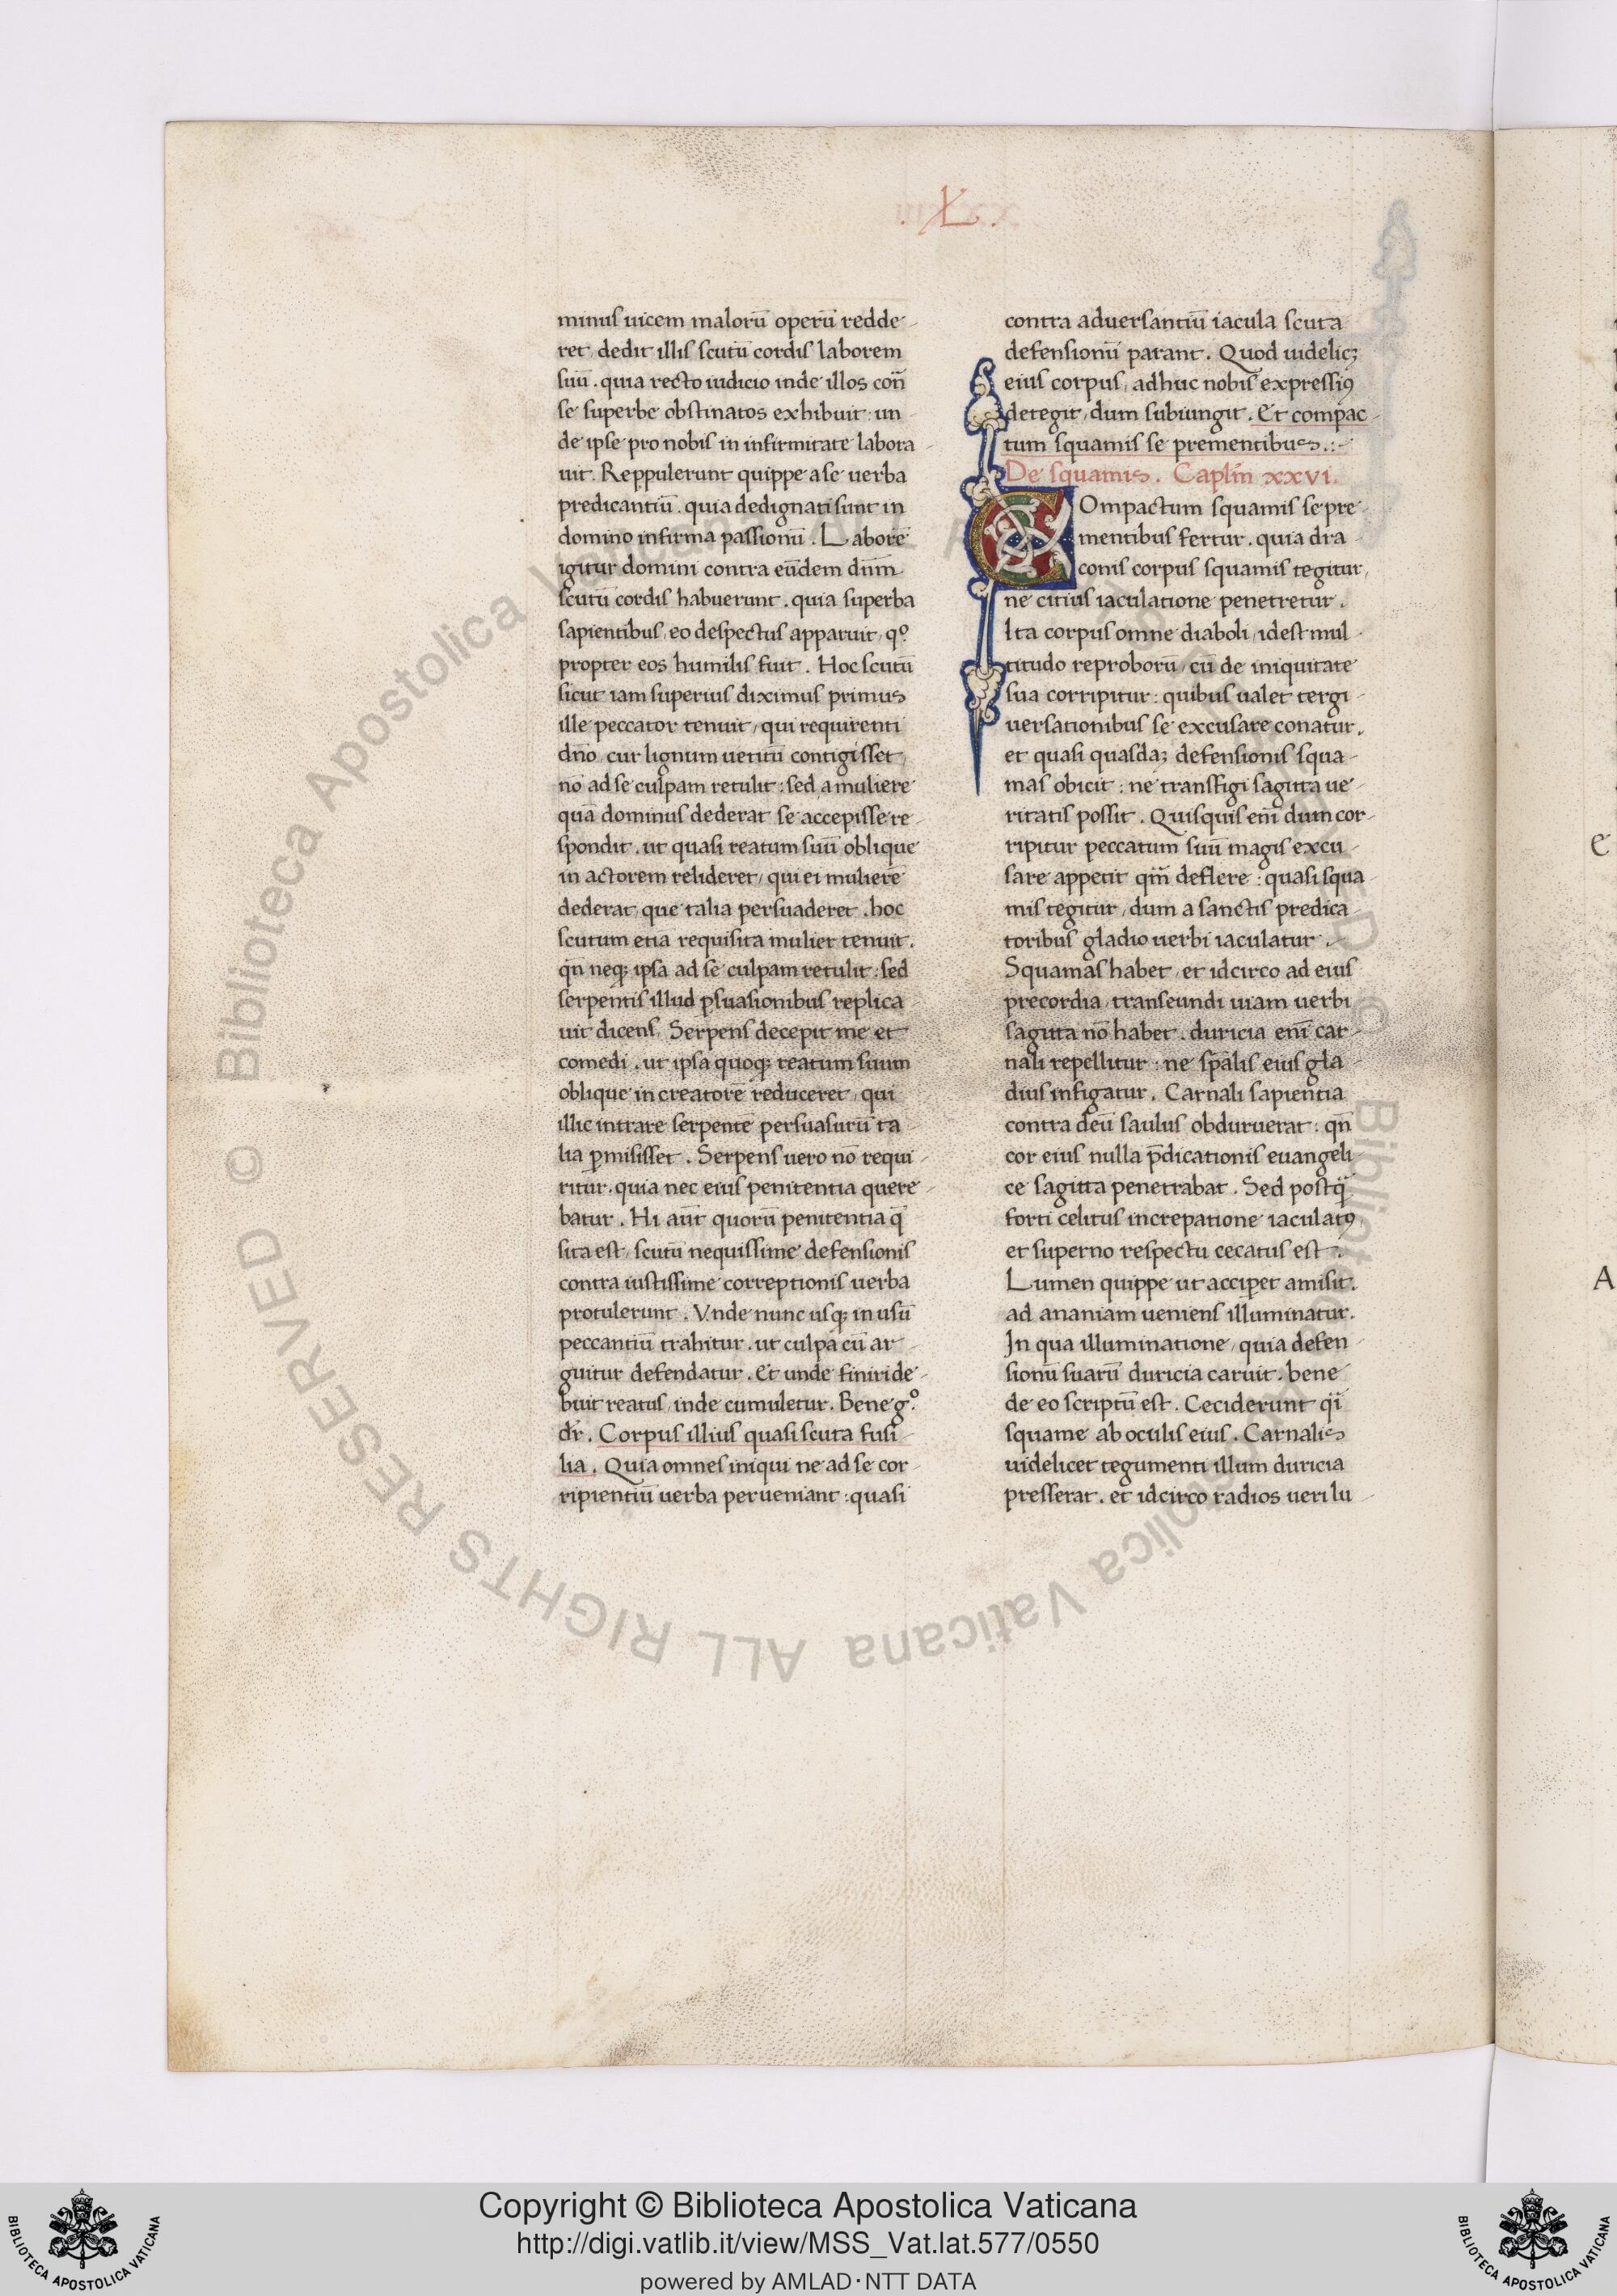 .XL.
minus uicem malorū operū redde-
ret, dedit illis scutū cordis laborem
suū. quia recto iudicio inde illos con̄
se superbe obstinatos exhibuit: un-
de ipse pro nobis in infirmitate labora-
uit. Reppulerunt quippe a se uerba
predicantiū. quia dedignati sunt in
domino infirma passionū. Laborē
igitur domini contra eūdem dn̄m
scutū cordis habuerunt. quia superba
sapientibus, eo despectus apparuit, qº
propter eos humilis fuit. Hoc scutū
sicut iam superius diximus primus
ille peccator tenuit, qui requirenti
dn̄o, cur lignum uetitū contigisset,
nō ad se culpam retulit: sed a muliere
quā dominus dederat se accepisse re-
spondit. ut quasi reatum suū oblique
in actorem relideret, qui ei mulierē
dederat, que talia persuaderet. hoc
scutum etiā requisita mulier tenuit.
qn̄ neq; ipsa ad se culpam retulit: sed
serpentis illud ꝑsuasionibus replica-
uit dicens. Serpens decepit me et
comedi. ut ipsa quoq; reatum suum
oblique in creatorē reduceret, qui
illic intrare serpentē persuasurū ta-
lia ꝑmisisset. Serpens uero nō requi-
ritur. quia nec eius penitentia quere-
batur. Hi aūt quorū penitentia q̄-
sita est, scutū nequissime defensionis
contra iustissime correptionis uerba
protulerunt. Vnde nunc usq; in usū
peccantiū trahitur. ut culpa cū ar-
guitur defendatur. Et unde finiri de-
buit reatus, inde cumuletur. Bene g°.
dr̄. Corpus illius quasi scuta fusi-
lia. Quia omnes iniqui ne ad se cor-
ripientiū uerba perueniant: quasi
contra aduersantiū iacula scuta
defensionū parant. Quod uidelicꝫ
eius corpus, adhuc nobis expressiꝰ
detegit, dum subiungit. Et compac-
tum squamis se prementibus.:-
De squamis. Caplm̄ xxvi.
Compactum squamis se pre-
mentibus fertur. quia dra-
conis corpus squamis tegitur,
ne citius iaculatione penetretur.
Ita corpus omne diaboli, idest mul-
titudo reproborū, cū de iniquitate
sua corripitur: quibus ualet tergi-
uersationibus se excusare conatur.
et quasi quasdaꝫ defensionis squa-
mas obicit: ne transfigi sagitta ue-
ritatis possit. Quisquis enī dum cor-
ripitur peccatum suū magis excu-
sare appetit qm̄ deflere: quasi squa-
mis tegitur, dum a sanctis predica-
toribus gladio uerbi iaculatur.
Squamas habet, et idcirco ad eius
precordia, transeundi uiam uerbi
sagitta nō habet. duricia enī car-
nali repellitur: ne sp̄alis eius gla-
dius infigatur. Carnali sapientia
contra deū saulus obduruerat: qn̄
cor eius nulla p̄dicationis euangeli-
ce sagitta penetrabat. Sed postq̄
forti celitus increpatione iaculatꝰ,
et superno respectu cecatus est.
Lumen quippe ut acciꝑet amisit.
ad ananiam ueniens illuminatur.
In qua illuminatione, quia defen-
sionū suarū duricia caruit. bene
de eo scriptū est. Ceciderunt qī
squame ab oculis eius. Carnalis
uidelicet tegumenti illum duricia
presserat. et idcirco radios ueri lu-
E
A
© Biblioteca Apostolica Vaticana ALL RIGHTS RESERVED
Copyright © Biblioteca Apostolica Vaticana
http://digi.vatlib.it/view/MSS_Vat.lat.577/0550
powered by AMLAD·NTT DATA
BIBLIOTECA APOSTOLICA VATICANA
BIBLIOTECA APOSTOLICA VATICANA